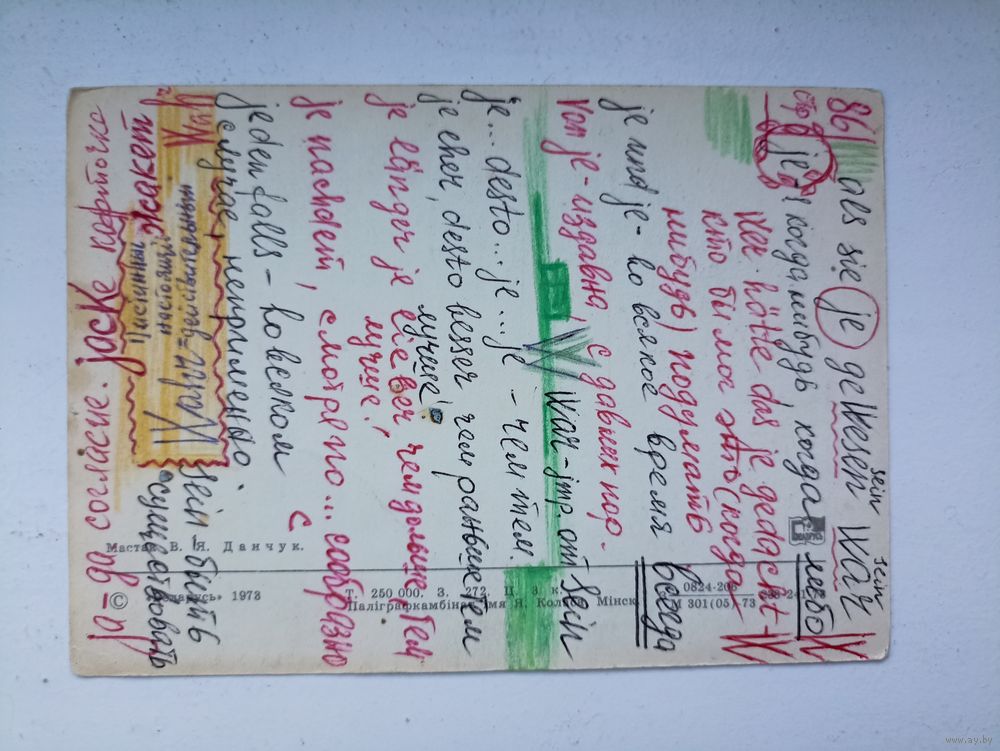 86/ als sie je gewesen war
sein sein
je когда нибудь, когда либо
wer hätte das je gedacht -
кто бы мог это (когда
нибудь) подумать
je und je - во всякое время всегда
von je - издавна, с давних пор.
W war - imp. от sein
je... desto... je... je - чем тем.
je eher, desto besser чем раньше тем
лучше!
je länger je lieber чем дольше тем
лучше!
je nachdem, смотря по... сообразно
с
jedenfalls - во всяком
случае, непременно.
Wahr
Wahr = действительный
истинный
настоящий
sein - быть
существовать
ja - да согласие. Jacke карточка
жакет
Мастак В. Я. Данчук.
© «Беларусь» 1973
т. 250 000. З. 272. Ц. 3 к.
Паліграфкамбінат імя Я. Коласа Мінск
0824-206
М 301(05)-73
БЕЛАРУСЬ
www.ay.by